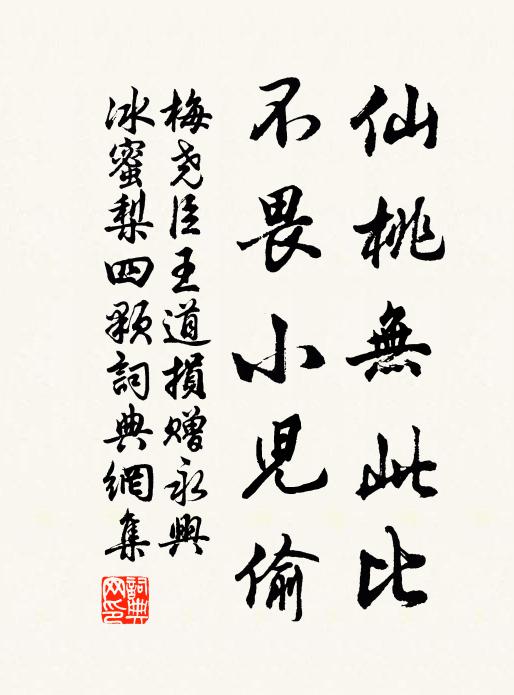 仙桃無此比
不畏小兒偷
梅堯臣王道損贈永興
冰蜜梨四顆詞典網集
詞典
网印